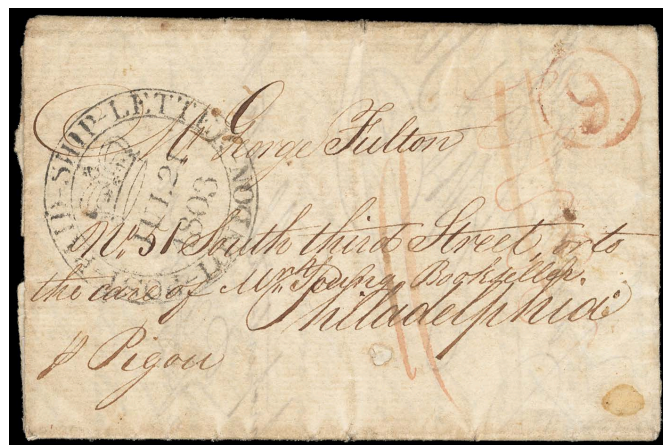 PAID SHIP-LETTER LONDON
JUL 2
1803
Mr. George Fulton
No. 31 South third Street, or to
the care of Mr. Young Bookseller.
Philadelphia
p Pigou